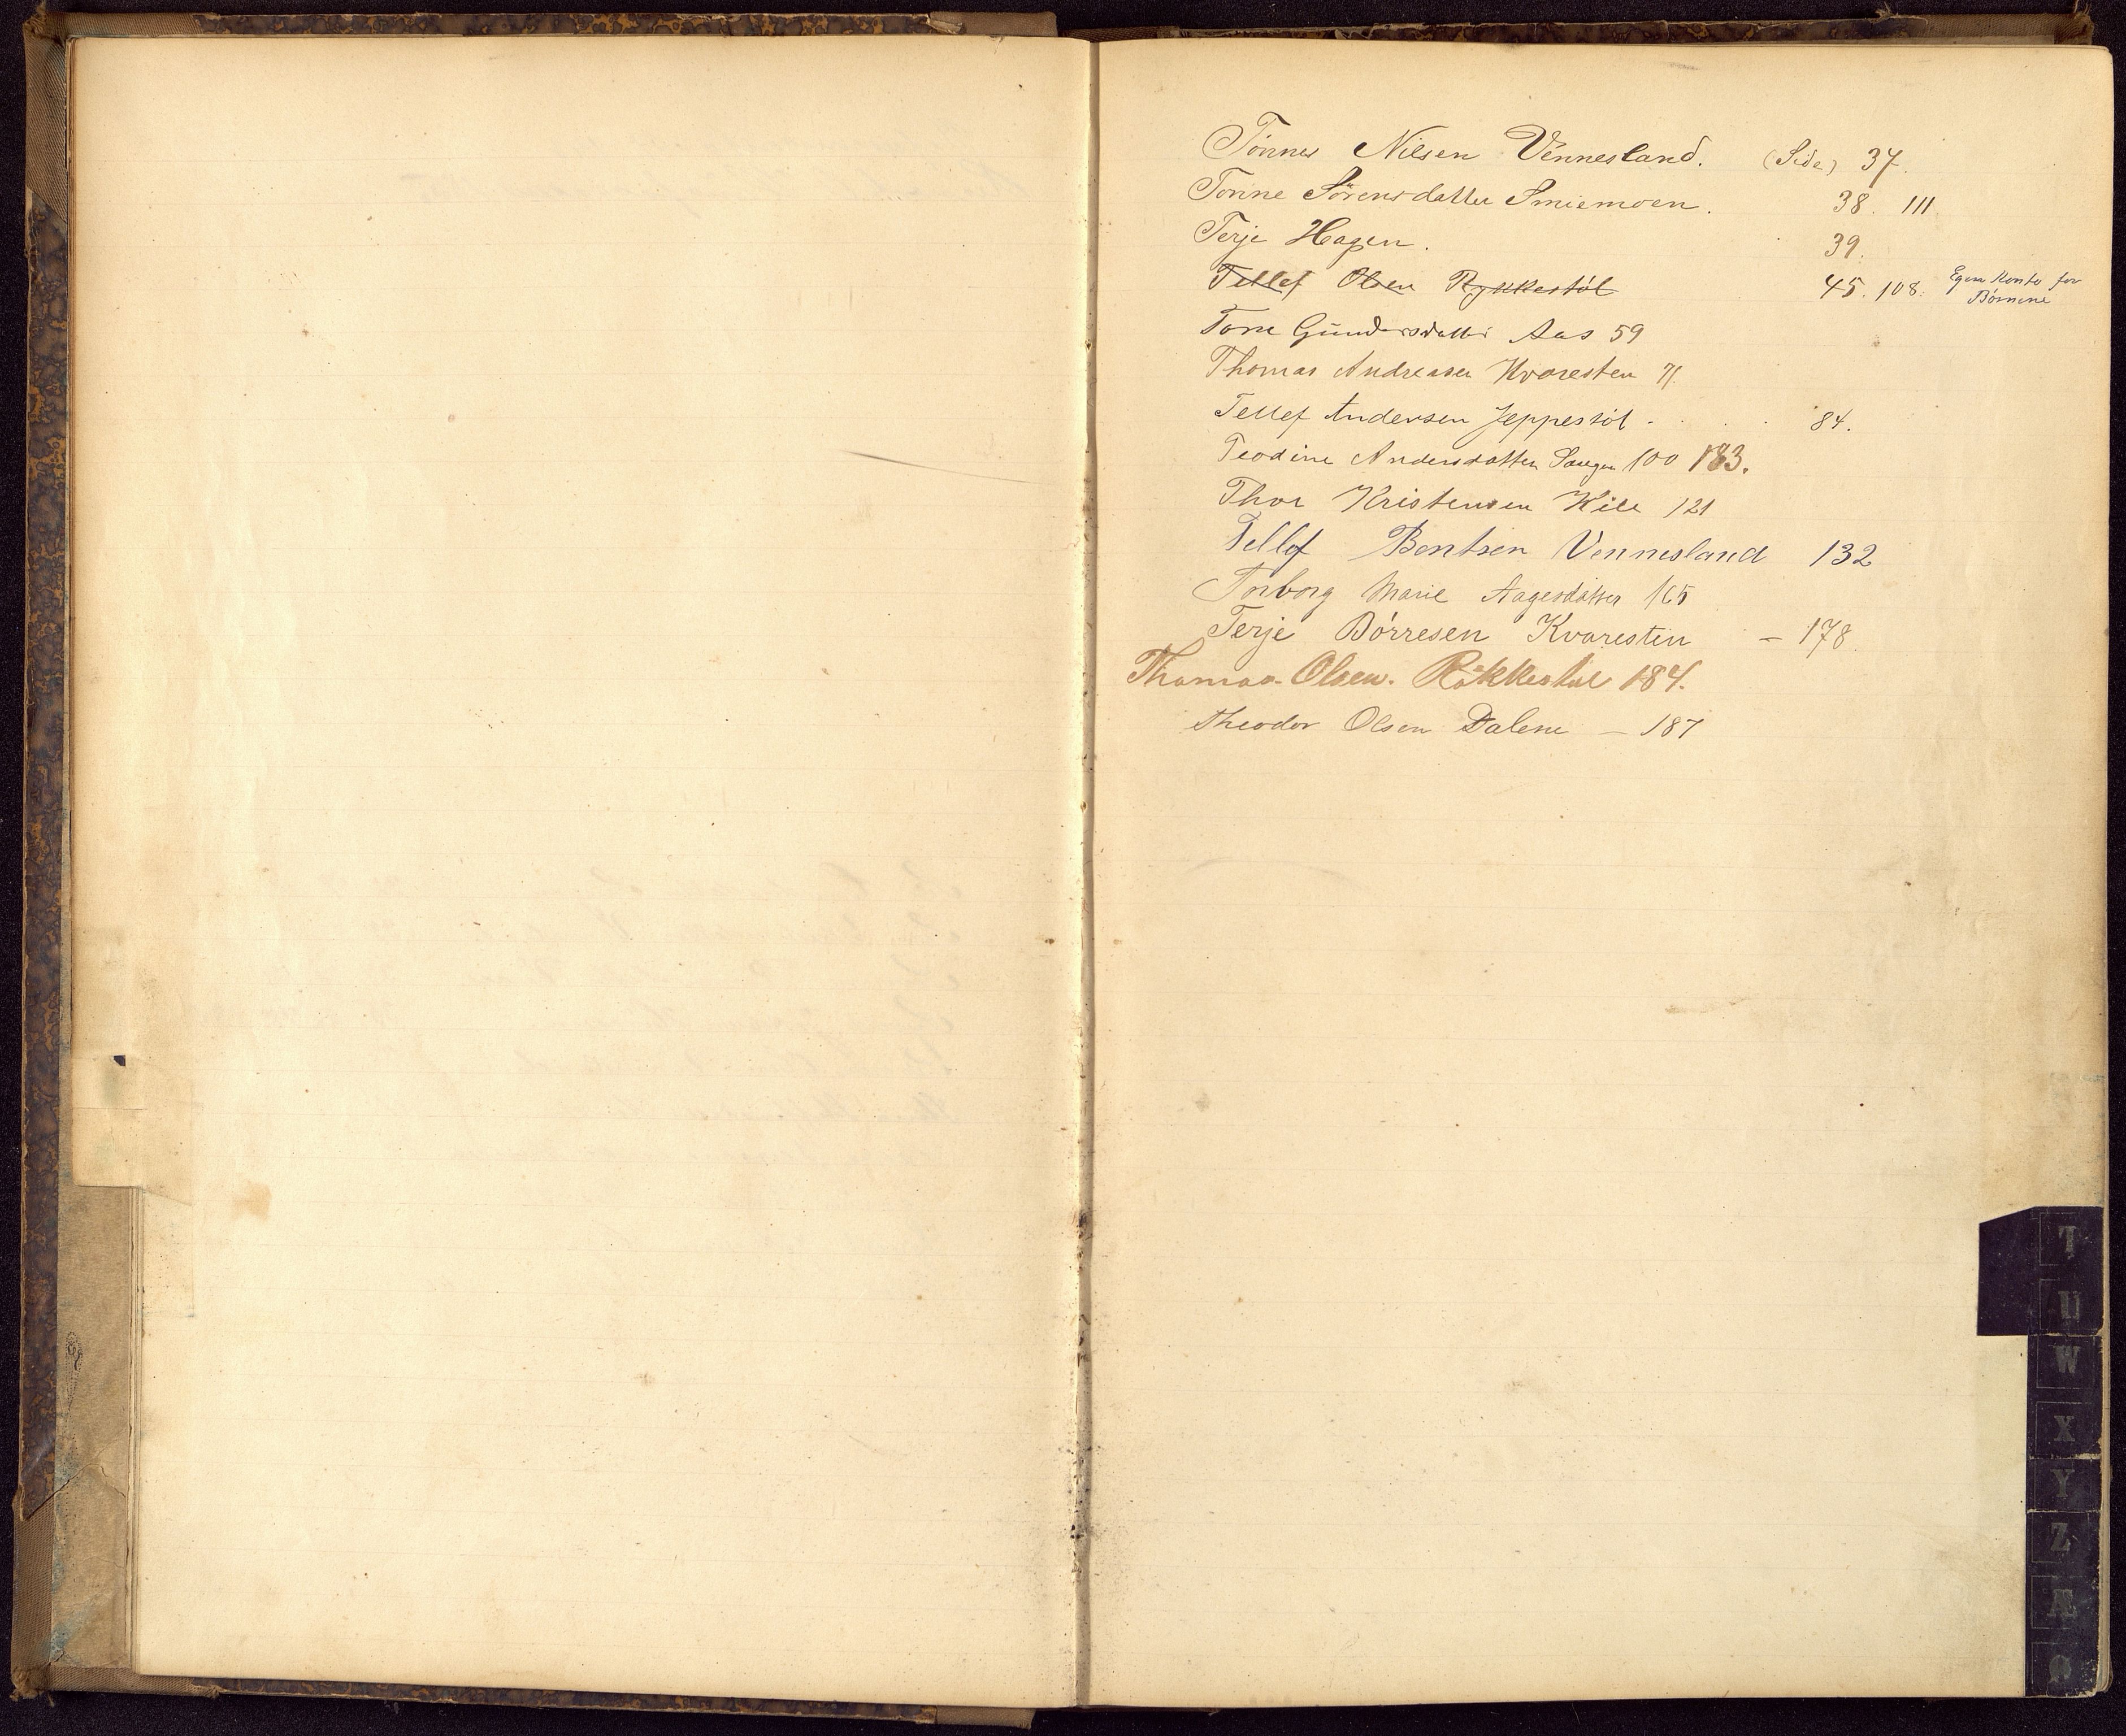 Tönnes Nilsen Vennesland. (Side) 37.
Tonne Sörensdatter Smiemoen. 38. 111
Terje Hagen. 39.
Tellef Olsen Rykkestøl 45. 108. Egen Konto for
Børnene
Tone Gundersdatter Aas 59
Thomas Andreasen Kvaresten 71.
Tellef Andersen Jeppestøl - . . . 84.
Teodine Andersdatter Saugen 100 183.
Thor Kristensen Kile 121
Tellef Bentsen Vennesland 132
Torborg Marie Aagesdatter 165
Terje Børresen Kvaresten - 178.
Thomas Olsen. Røkkestøl 184.
Theodor Olsen Dalene - 187
T
U
W
X
Y
Z
Æ
Ø